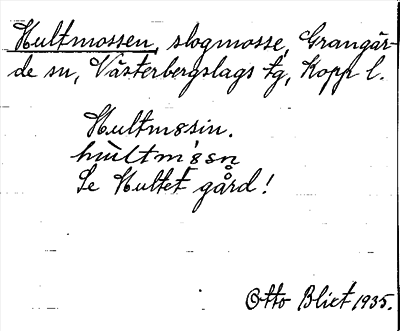 Hultmossen, slogmosse, Grangär-
de sn, Västerbergslags tg, Kopp l.
Hultm8sin.
hùltm'8sn̥
Se Hultet gård!
Otto Blixt 1935.